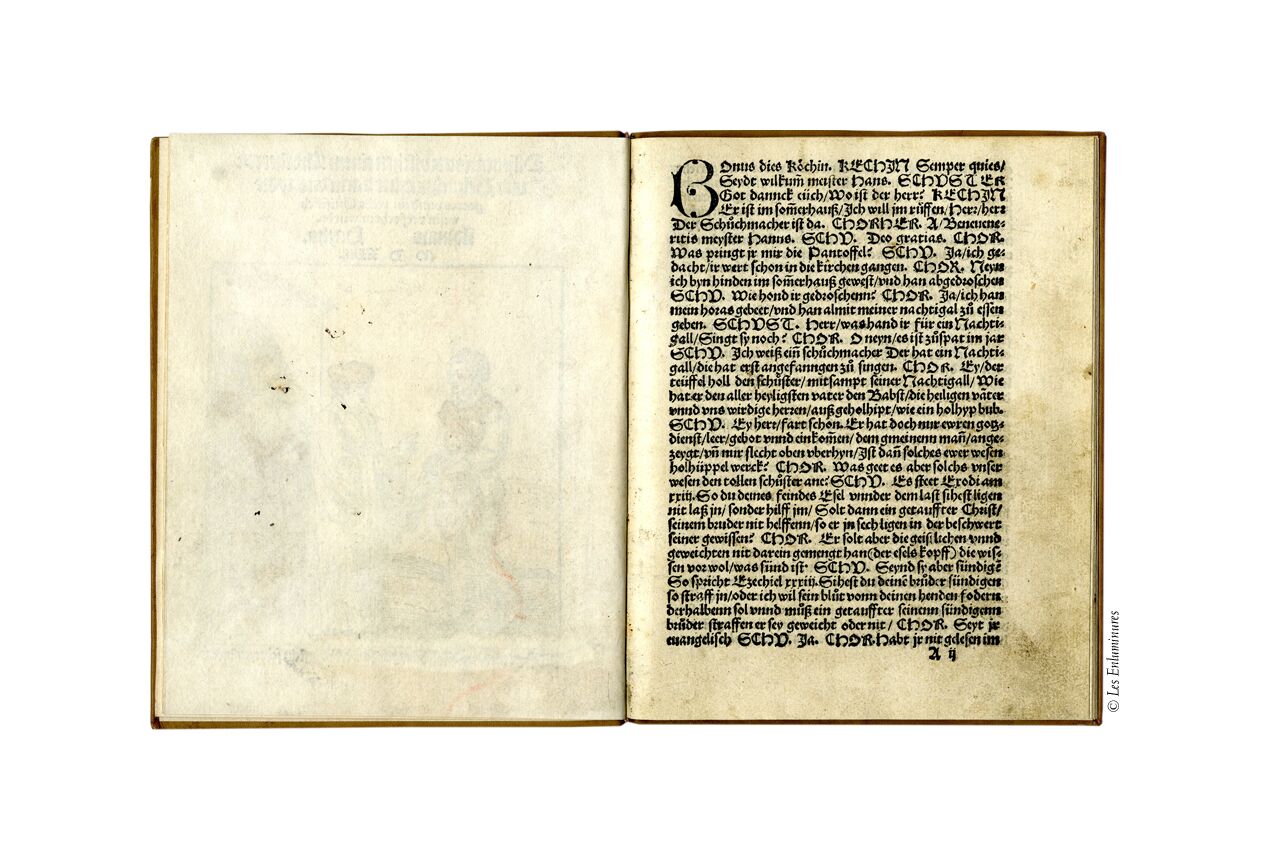 Bonus dies Köchin. KECHIN Semper quies/
Seydt wilkum̃ meister Hans. SCHVSTER
Got danck eüch/Wo ist der herr? KECHIN
Er ist im som̃erhauß/Ich will jm rüffen/herr/herr
Der Schůchmacher ist da. CHORHER. A/Beneuene-
ritis meyster Hanns. SCHV. Deo gratias. CHOR.
Was pringt jr mir die Pantoffel? SCHV. Ja/ich ge-
dacht/ir wert schon in die kirchen gangen. CHOR. Neyn
ich byn hinden im som̃erhauß gewest/vnd han abgedroschen
SCHV. Wie hond ir gedroschenn? CHOR. Ja/ich han
mein horas gebeet/vnd han almit meiner nachtigal zů essen
geben. SCHVST. Herr/was hand ir für ein Nachti-
gall/Singt sy noch? CHOR. O neyn/es ist zůspat im jar
SCHV. Ich weiß ein̄ schůchmacher Der hat ein Nachti-
gall/die hat erst angefanngen zů singen. CHOR. Ey/der
teüffel holl den schůster/mitsampt seiner Nachtigall/Wie
hat er den aller heyligsten vater den Babst/die heiligen väter
vnnd vns wirdige herren/außgeholhipt/wie ein holhyp bub.
SCHV. Ey herr/fart schon. Er hat doch nur ewren gotz-
dienst/leer/gebot vnnd einkom̃en/dem gmeinenn man̄/ange-
zeygt/vn̄ nur slecht oben vberhyn/Ist dan̄ solches ewer wesen
holhüppel werck? CHOR. Was geet es aber solchs vnser
wesen den tollen schůster ane? SCHV. Es steet Exodi am
xxiij. So du deines feindes Esel vnnder dem last sihest ligen
nit laß jn/sonder hilff jm/Solt dann ein getauffter Christ/
seinem bruder nit helffenn/so er jn sech ligen in der beschwert
seiner gewissen? CHOR. Er solt aber die geistlichen vnnd
geweichten nit darein gemengt han (der esels kopff) die wis-
sen vor wol/was sünd ist. SCHV. Seynd sy aber sündigē
So spricht Ezechiel xxxiij. Sihest du deinē brůder sündigen
so straff jn/oder ich wil sein blůt vonn deinen henden fodern
derhalbenn sol vnnd můß ein getauffter seinenn sündigenn
brůder straffen er sey geweicht oder nit/CHOR. Seyt jr
euangelisch SCHV. Ja. CHOR. Habt jr nit gelesen im
A ij
© Les Enluminures